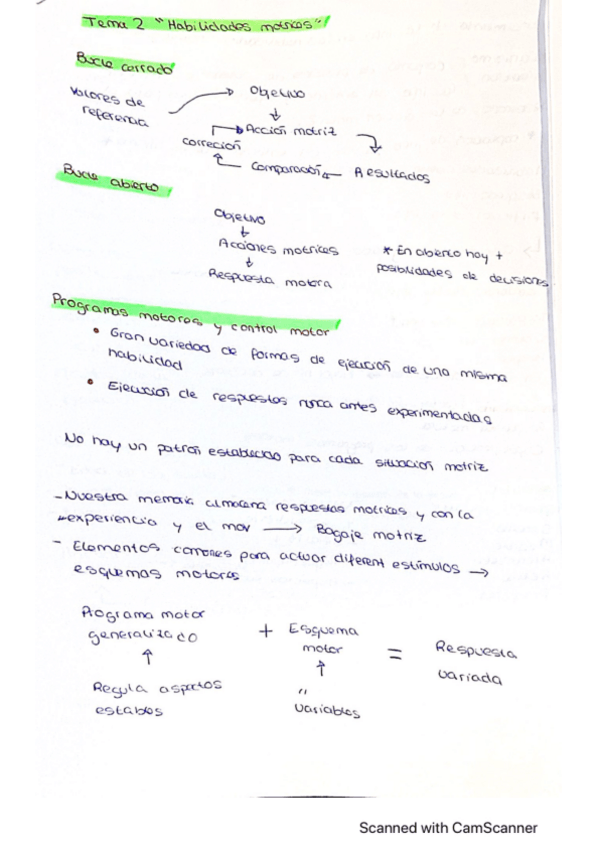 Tema 2 "Habilidades motrices"
Bucle cerrado
Valores de referencia → Objetivo
↓
Acción motriz
corrección ← Comparación ← Resultados
Bucle abierto
Objetivo
↓
Acciones motrices
↓
Respuesta motora
* En abierto hay +
posibilidades de decisiones
Programas motores y control motor
• Gran variedad de formas de ejecución de una misma
habilidad
• Ejecución de respuestas nunca antes experimentadas
No hay un patrón establecido para cada situación motriz
- Nuestra memoria almacena respuestas motrices y con la
experiencia y el mov → Bagaje motriz
- Elementos comunes para actuar diferent estímulos →
esquemas motores
Programa motor
generalizado
+ Esquema
motor
= Respuesta
variada
↑
Regula aspectos
estables
↑
"
variables
Scanned with CamScanner